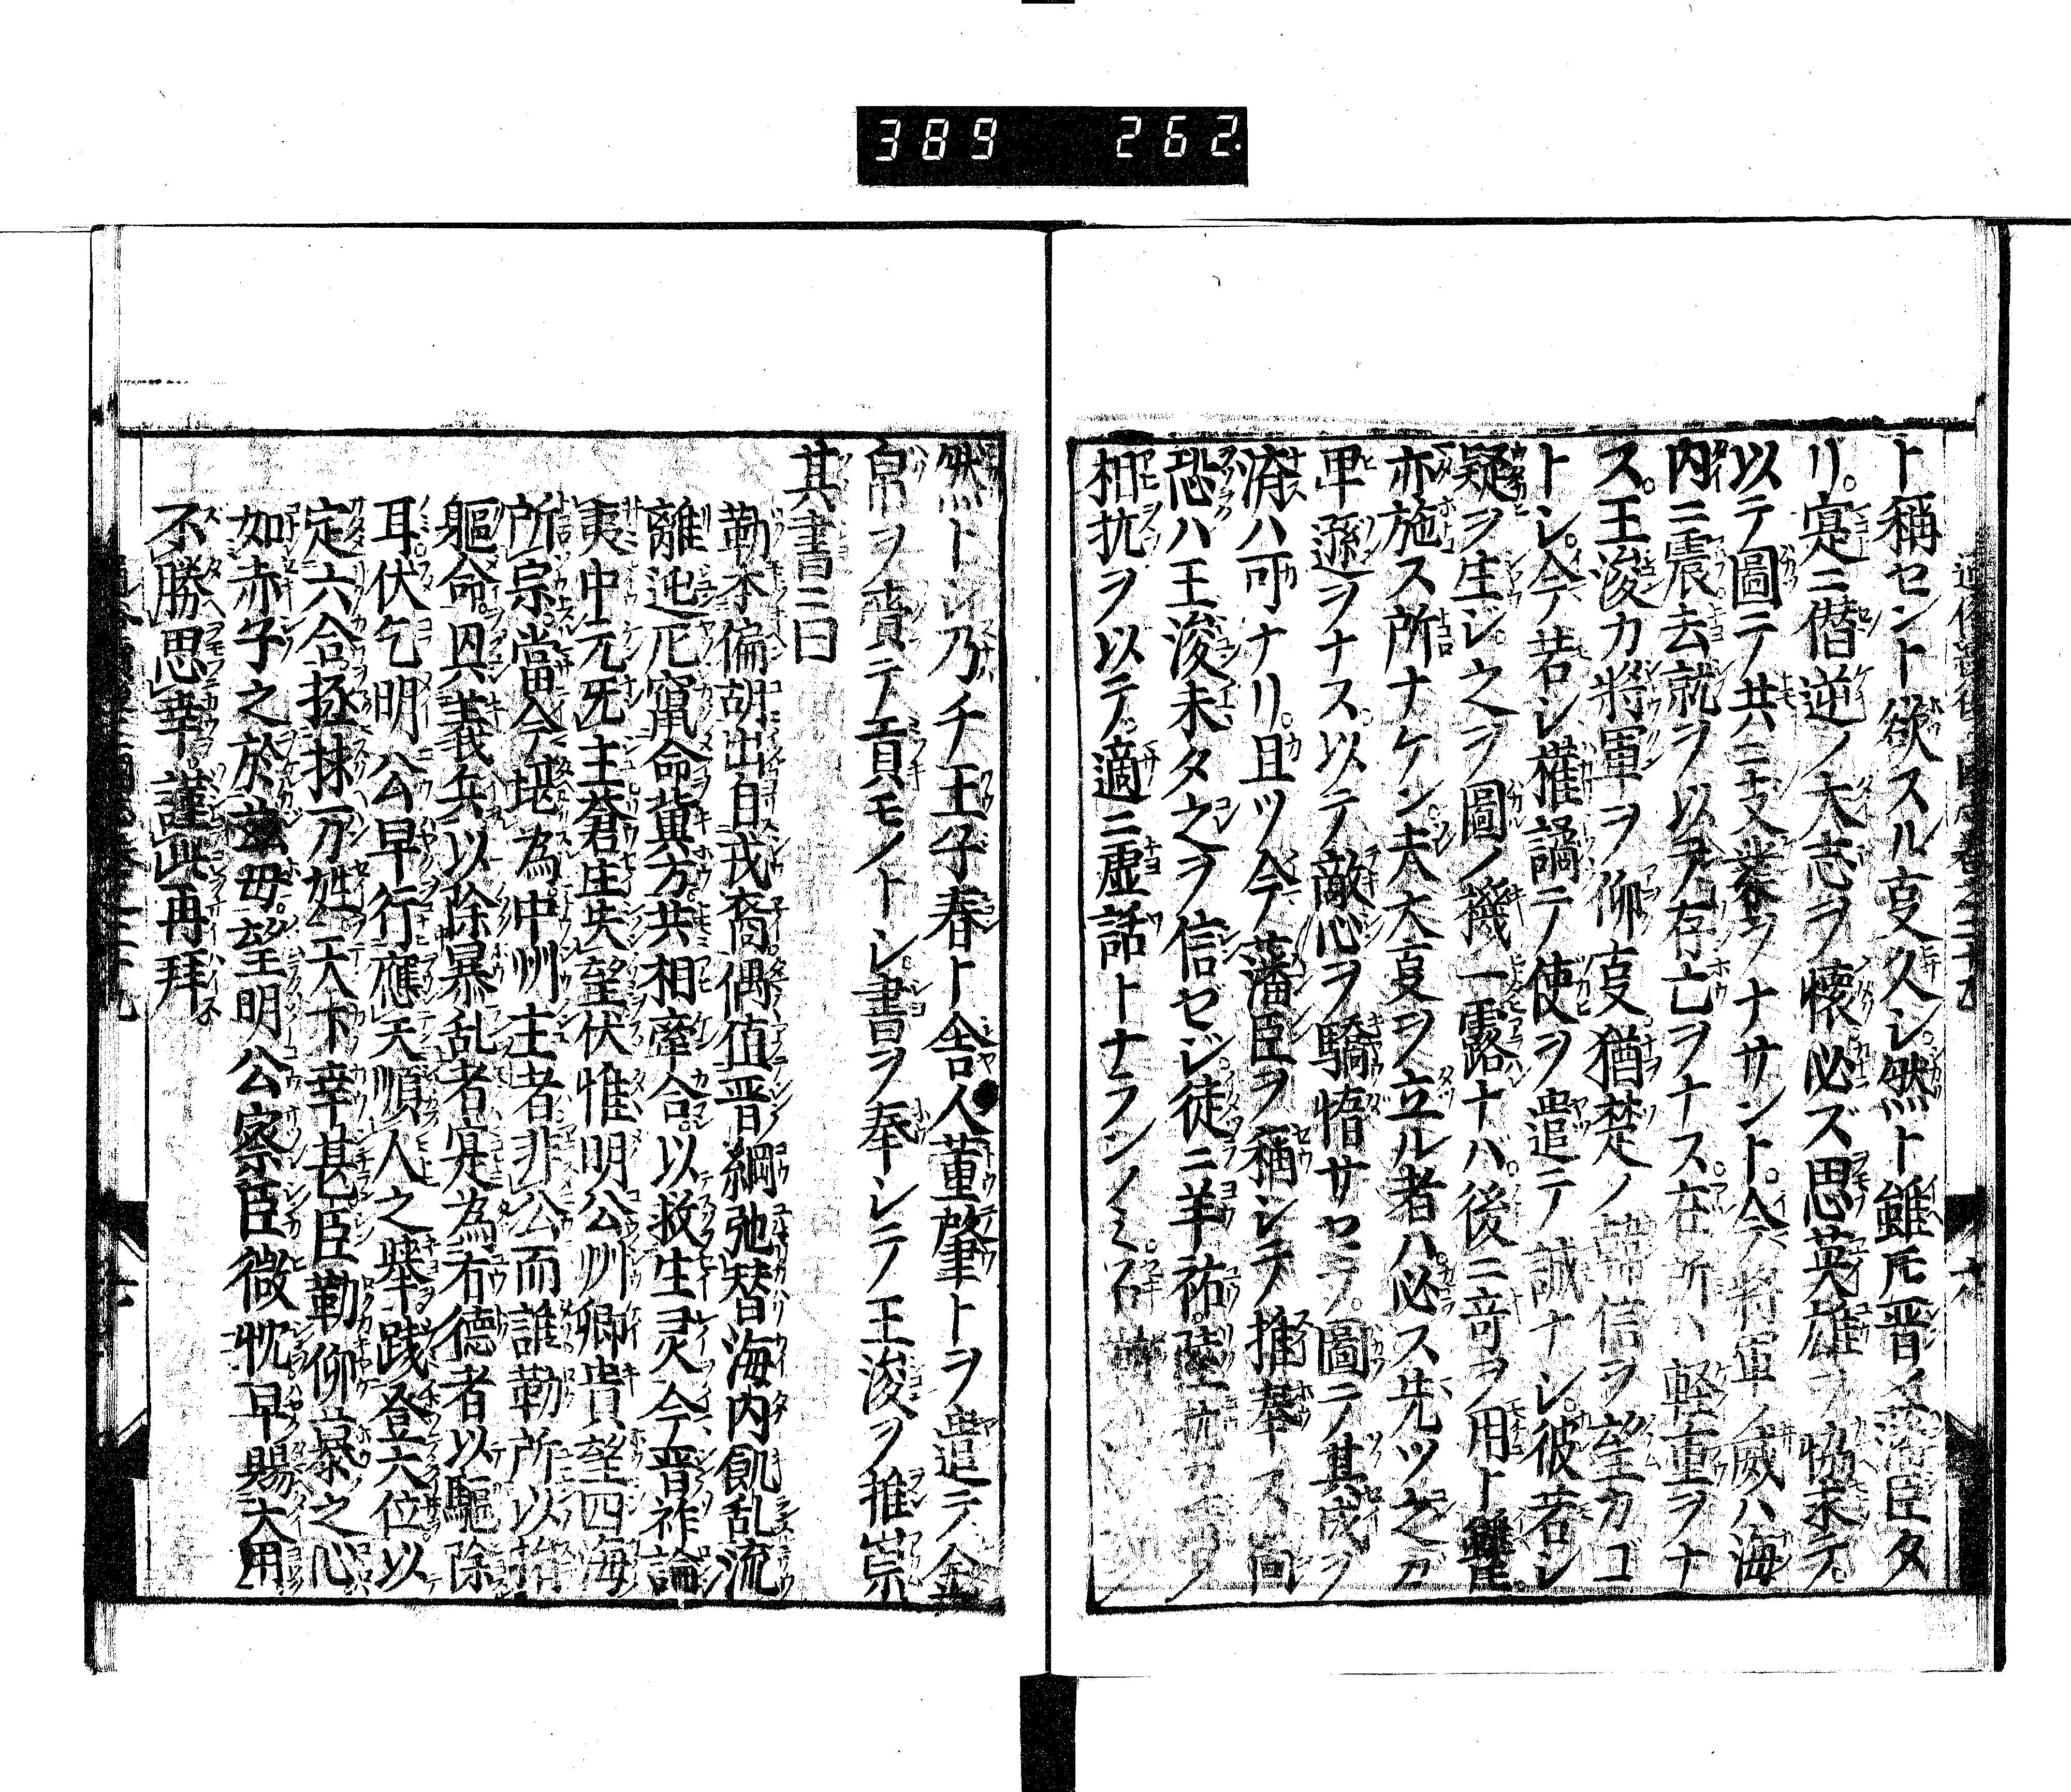 389 262.
ト稱セント欲スル㕝久シ然ト雖𪜈晋ノ藩臣タ
リ。寔ニ僣逆ノ大志ヲ懐必ズ思英雄ヲ協求テ。
以テ圖テ共ニ㕝業ヲナサント。今將軍ノ威ハ海
内ニ震去就ヲ以テ存亡ヲナス。在所ハ軽重ヲナ
ス。王浚カ將軍ヲ仰㕝猶楚ノ韓信ヲ望カゴ
トシ。今若シ權譎ニテ使ヲ遣ニテ誠ナシ。彼若シ
疑ヲ生ジ之ヲ圖ノ機一露ナバ。後ニ竒ヲ用ト雖
亦施ス所ナケン。夫大㕝ヲ立ル者ハ必ス先ツ之ガ
卑遜ヲナス。以テ敵心ヲ驕惰サセテ。圖ニテ其成ヲ
済ハ可ナリ。且ツ今藩臣ヲ稱シテ推奉ス向
恐ハ王浚未タ之ヲ信ゼジ徒ニ羊祜。陸抗カ
相抗ヲ以テ。適ニ虚話トナランノミ。石
然トシ乃チ王子春ト舎人董肇トヲ遣テ金
帛ヲ賷テ貢モノトシ。書ヲ奉シテ王浚ヲ推崇
其書ニ曰
勒本偏胡出自戎裔偶值晋綱弛替海内飢乱流
離迍厄竄命冀方共相牽合以救生灵今晋祚論
夷中元旡主蒼庄失望伏惟明公州卿貴望四海
所宗當今堪為中州主者非公而誰勒所以捐
軀命貝義兵以除暴乱者寔為有德者以驅除
耳伏乞明公早行應天順人之舉踐登大位以
定六合拯捄万姓天下幸甚臣勒仰慕之心
如赤子之於玆母。望明公察臣微忱早賜大用
不勝思幸謹此再拜